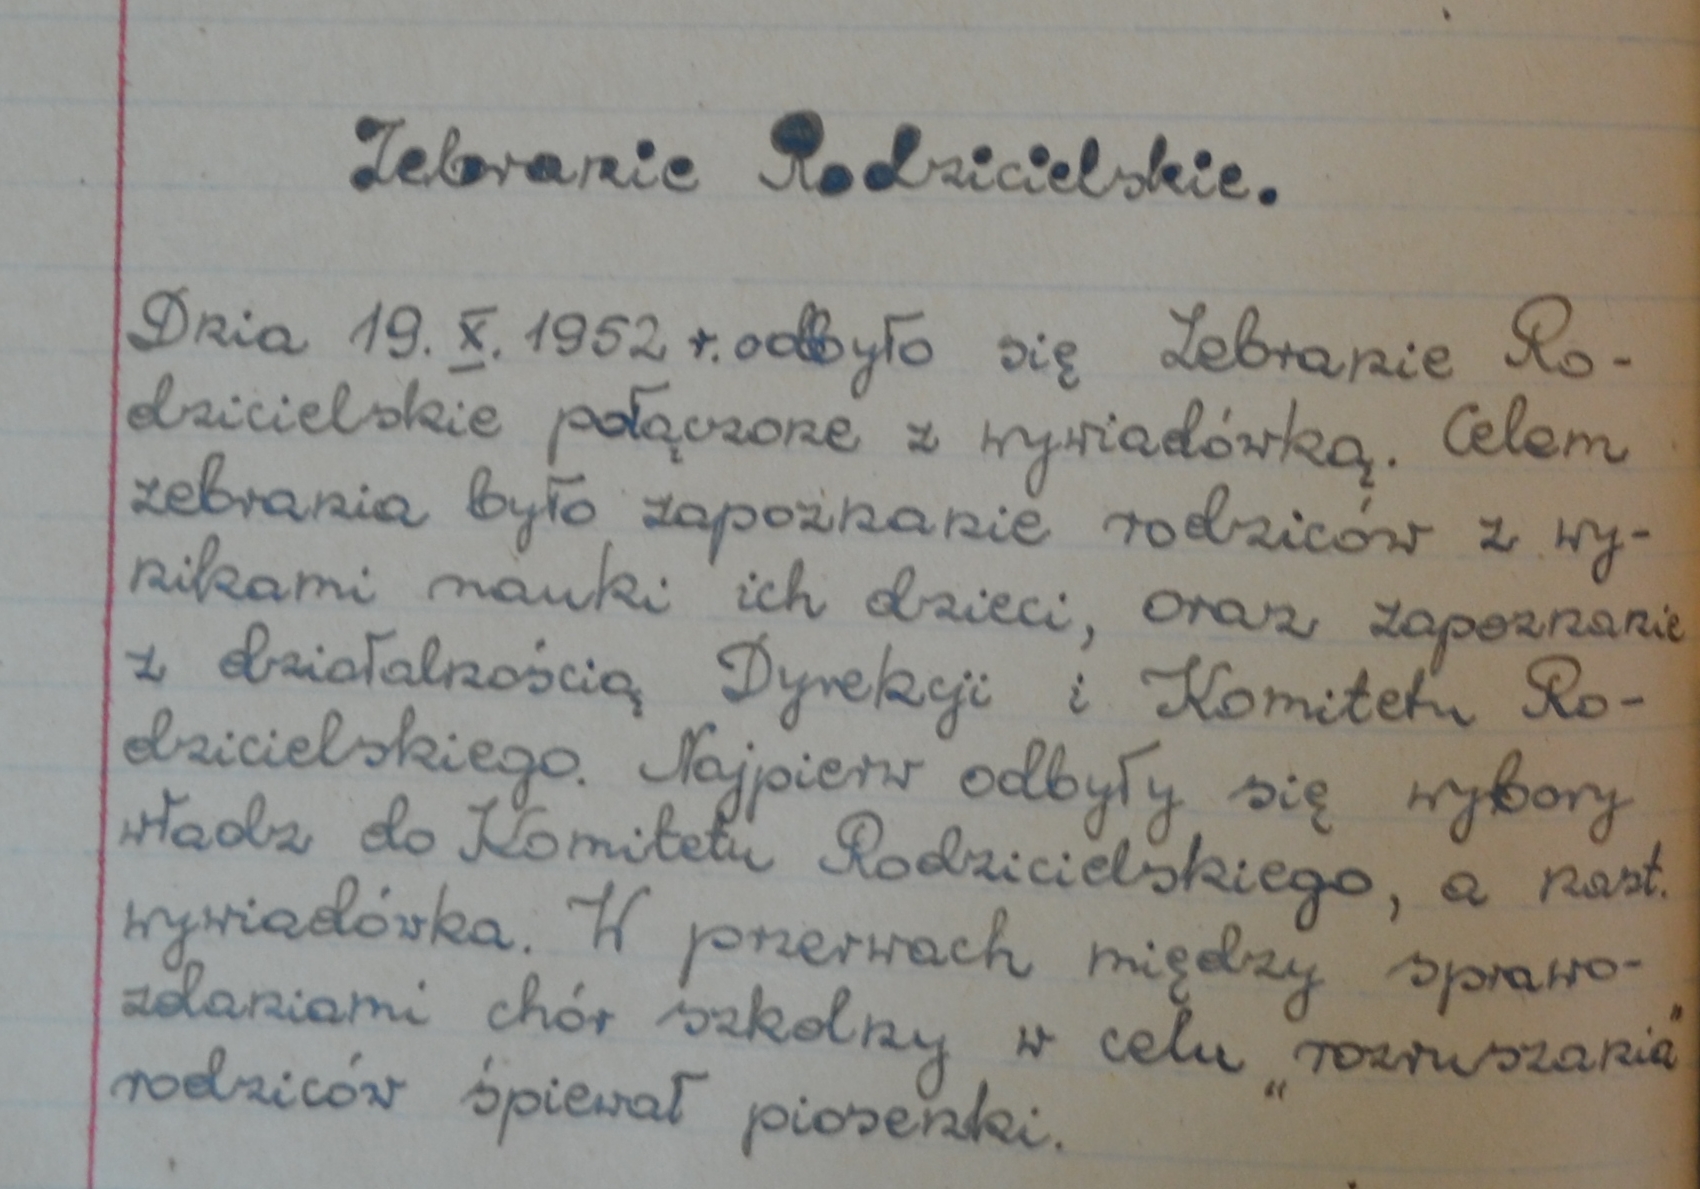 Zebranie Rodzicielskie.
Dnia 19. X. 1952 r. odbyło się Zebranie Ro-
dzicielskie połączone z wywiadówką. Celem
zebrania było zapoznanie rodziców z wy-
nikami nauki ich dzieci, oraz zapoznanie
z działalnością Dyrekcji i Komitetu Ro-
dzicielskiego. Najpierw odbyły się wybory
władz do Komitetu Rodzicielskiego, a nast.
wywiadówka. W przerwach między sprawo-
zdaniami chór szkolny w celu „rozruszania"
rodziców śpiewał piosenki.